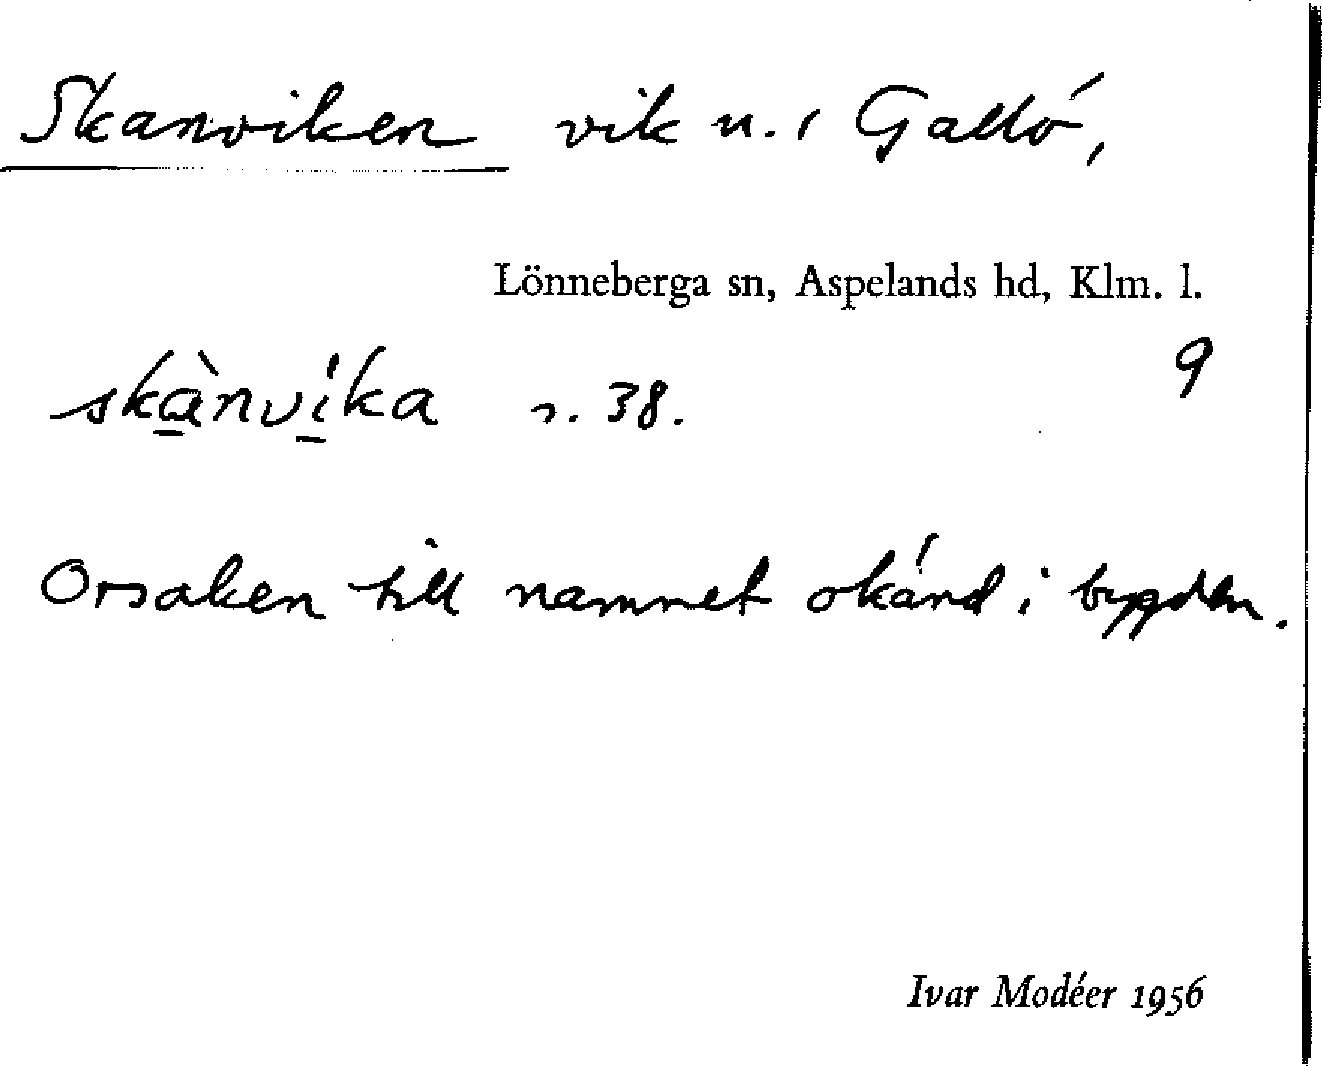 Skanviken vik n. i Gallö,
Lönneberga sn, Aspelands hd, Klm. l.
9
skànvíka s. 38.
Orsaken till namnet okänd i bygden.
Ivar Modéer 1956